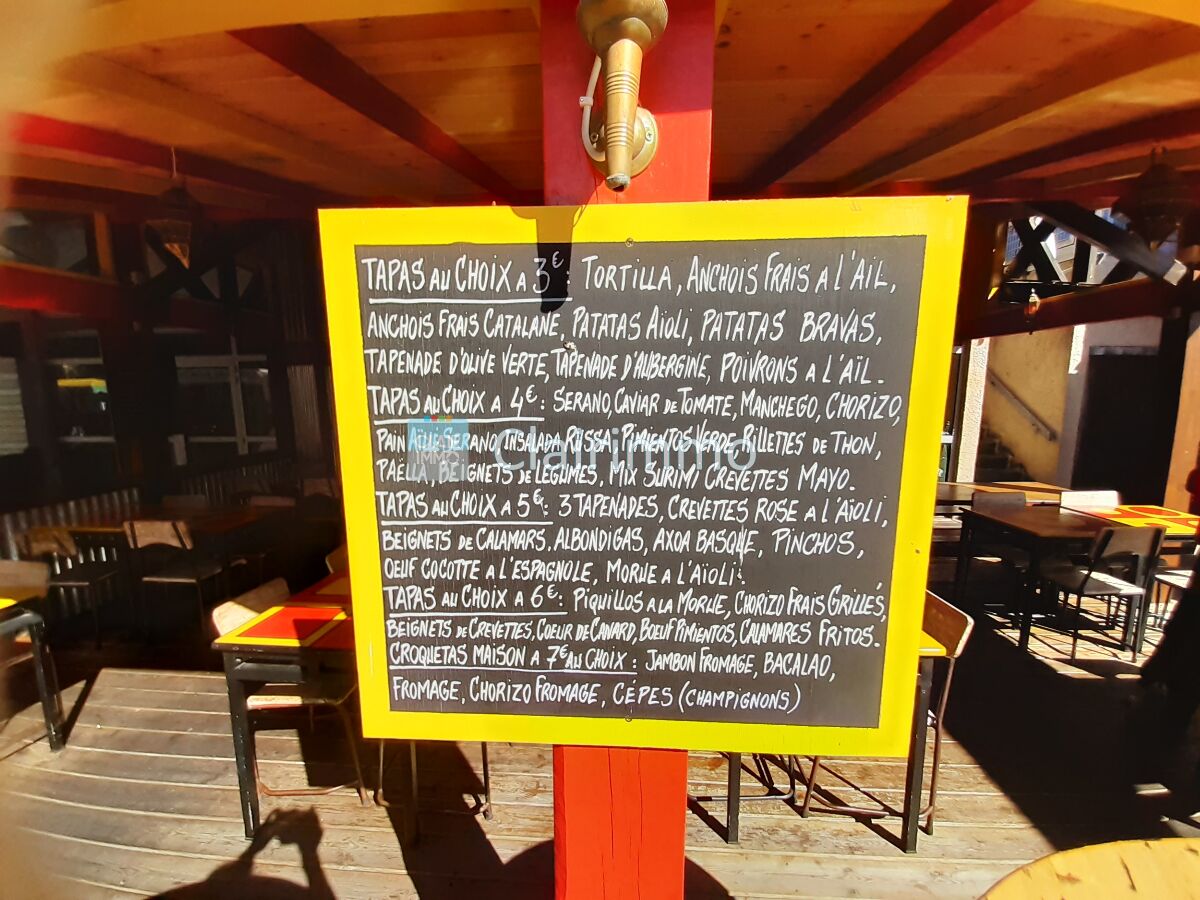 TAPAS AU CHOIX A 3€ : TORTILLA, ANCHOIS FRAIS A L'AÏL,
ANCHOIS FRAIS CATALANE, PATATAS AÏOLI, PATATAS BRAVAS,
TAPENADE D'OLIVE VERTE, TAPENADE D'AUBERGINE, POIVRONS A L'AÏL.
TAPAS AU CHOIX A 4€ : SERANO, CAVIAR DE TOMATE, MANCHEGO, CHORIZO,
PAIN AÏLLI SERANO INSALADA RUSSA, PIMIENTOS VERDE, RILLETTES DE THON,
PAËLLA, BEIGNETS DE LÉGUMES, MIX SURIMI CREVETTES MAYO.
Clairimmo
TAPAS AU CHOIX A 5€ : 3 TAPENADES, CREVETTES ROSE A L'AÏOLI,
BEIGNETS DE CALAMARS, ALBONDIGAS, AXOA BASQUE, PINCHOS,
OEUF COCOTTE A L'ESPAGNOLE, MORUE A L'AÏOLI.
TAPAS AU CHOIX A 6€ : PIQUILLOS A LA MORUE, CHORIZO FRAIS GRILLÉS,
BEIGNETS DE CREVETTES, COEUR DE CANARD, BOEUF PIMIENTOS, CALAMARES FRITOS.
CROQUETAS MAISON A 7€ AU CHOIX : JAMBON FROMAGE, BACALAO,
FROMAGE, CHORIZO FROMAGE, CÉPES (CHAMPIGNONS)